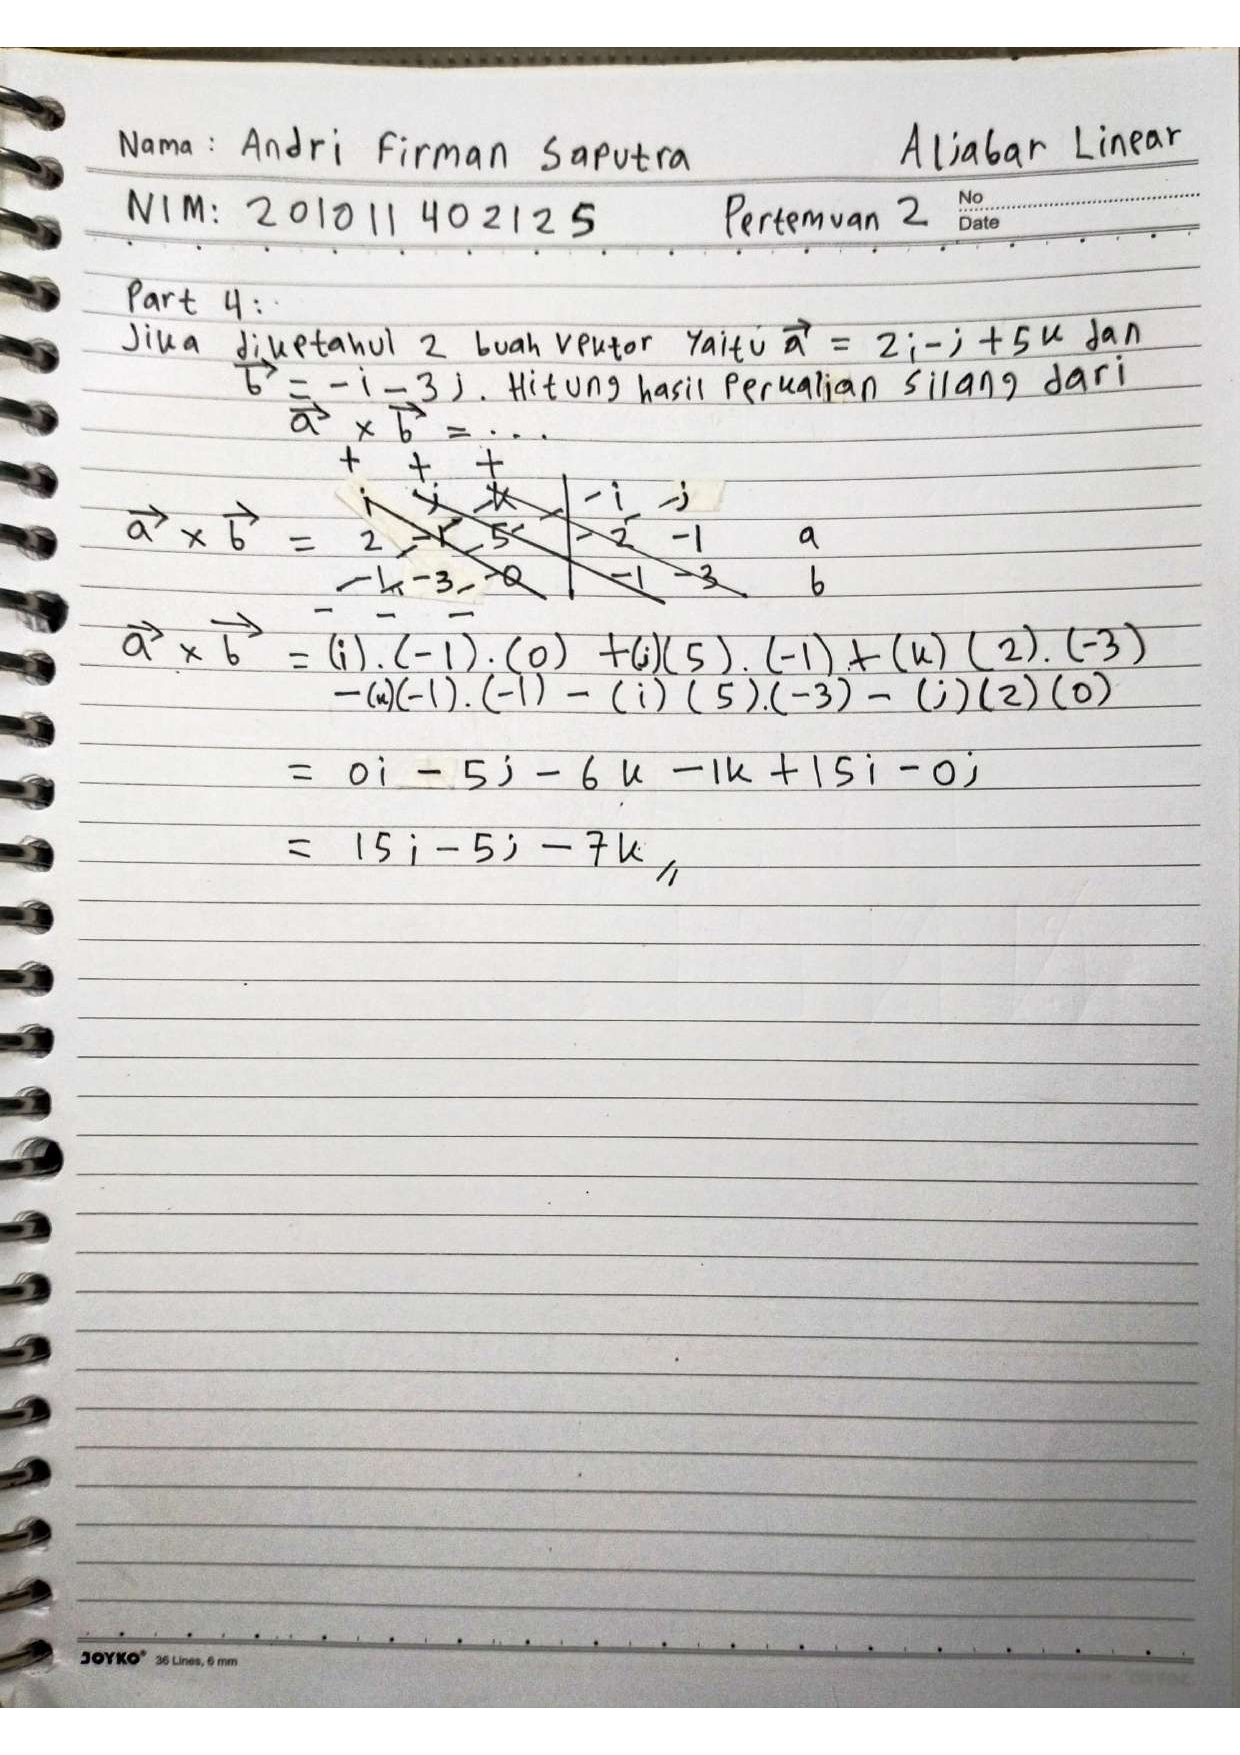 Nama : Andri Firman Saputra Aljabar Linear
NIM: 201011402125 Pertemuan 2 No
Date
Part 4 :
Jika diketahui 2 buah vektor yaitu a⃗ = 2i-j+5k dan
b⃗ = -i-3j. Hitung hasil Perkalian silang dari
a⃗ × b⃗ = ...
+ + +
i j k | i j
a⃗ × b⃗ = 2 -1 5 | 2 -1 a
-1 -3 0 | -1 -3 b
- - -
a⃗ × b⃗ = (i).(-1).(0) +(j)(5).(-1)+(k)(2).(-3)
-(k)(-1).(-1) - (i)(5).(-3) - (j)(2)(0)
= 0i - 5j - 6k - 1k + 15i - 0j
= 15i - 5j - 7k //
JOYKO® 36 Lines, 6 mm